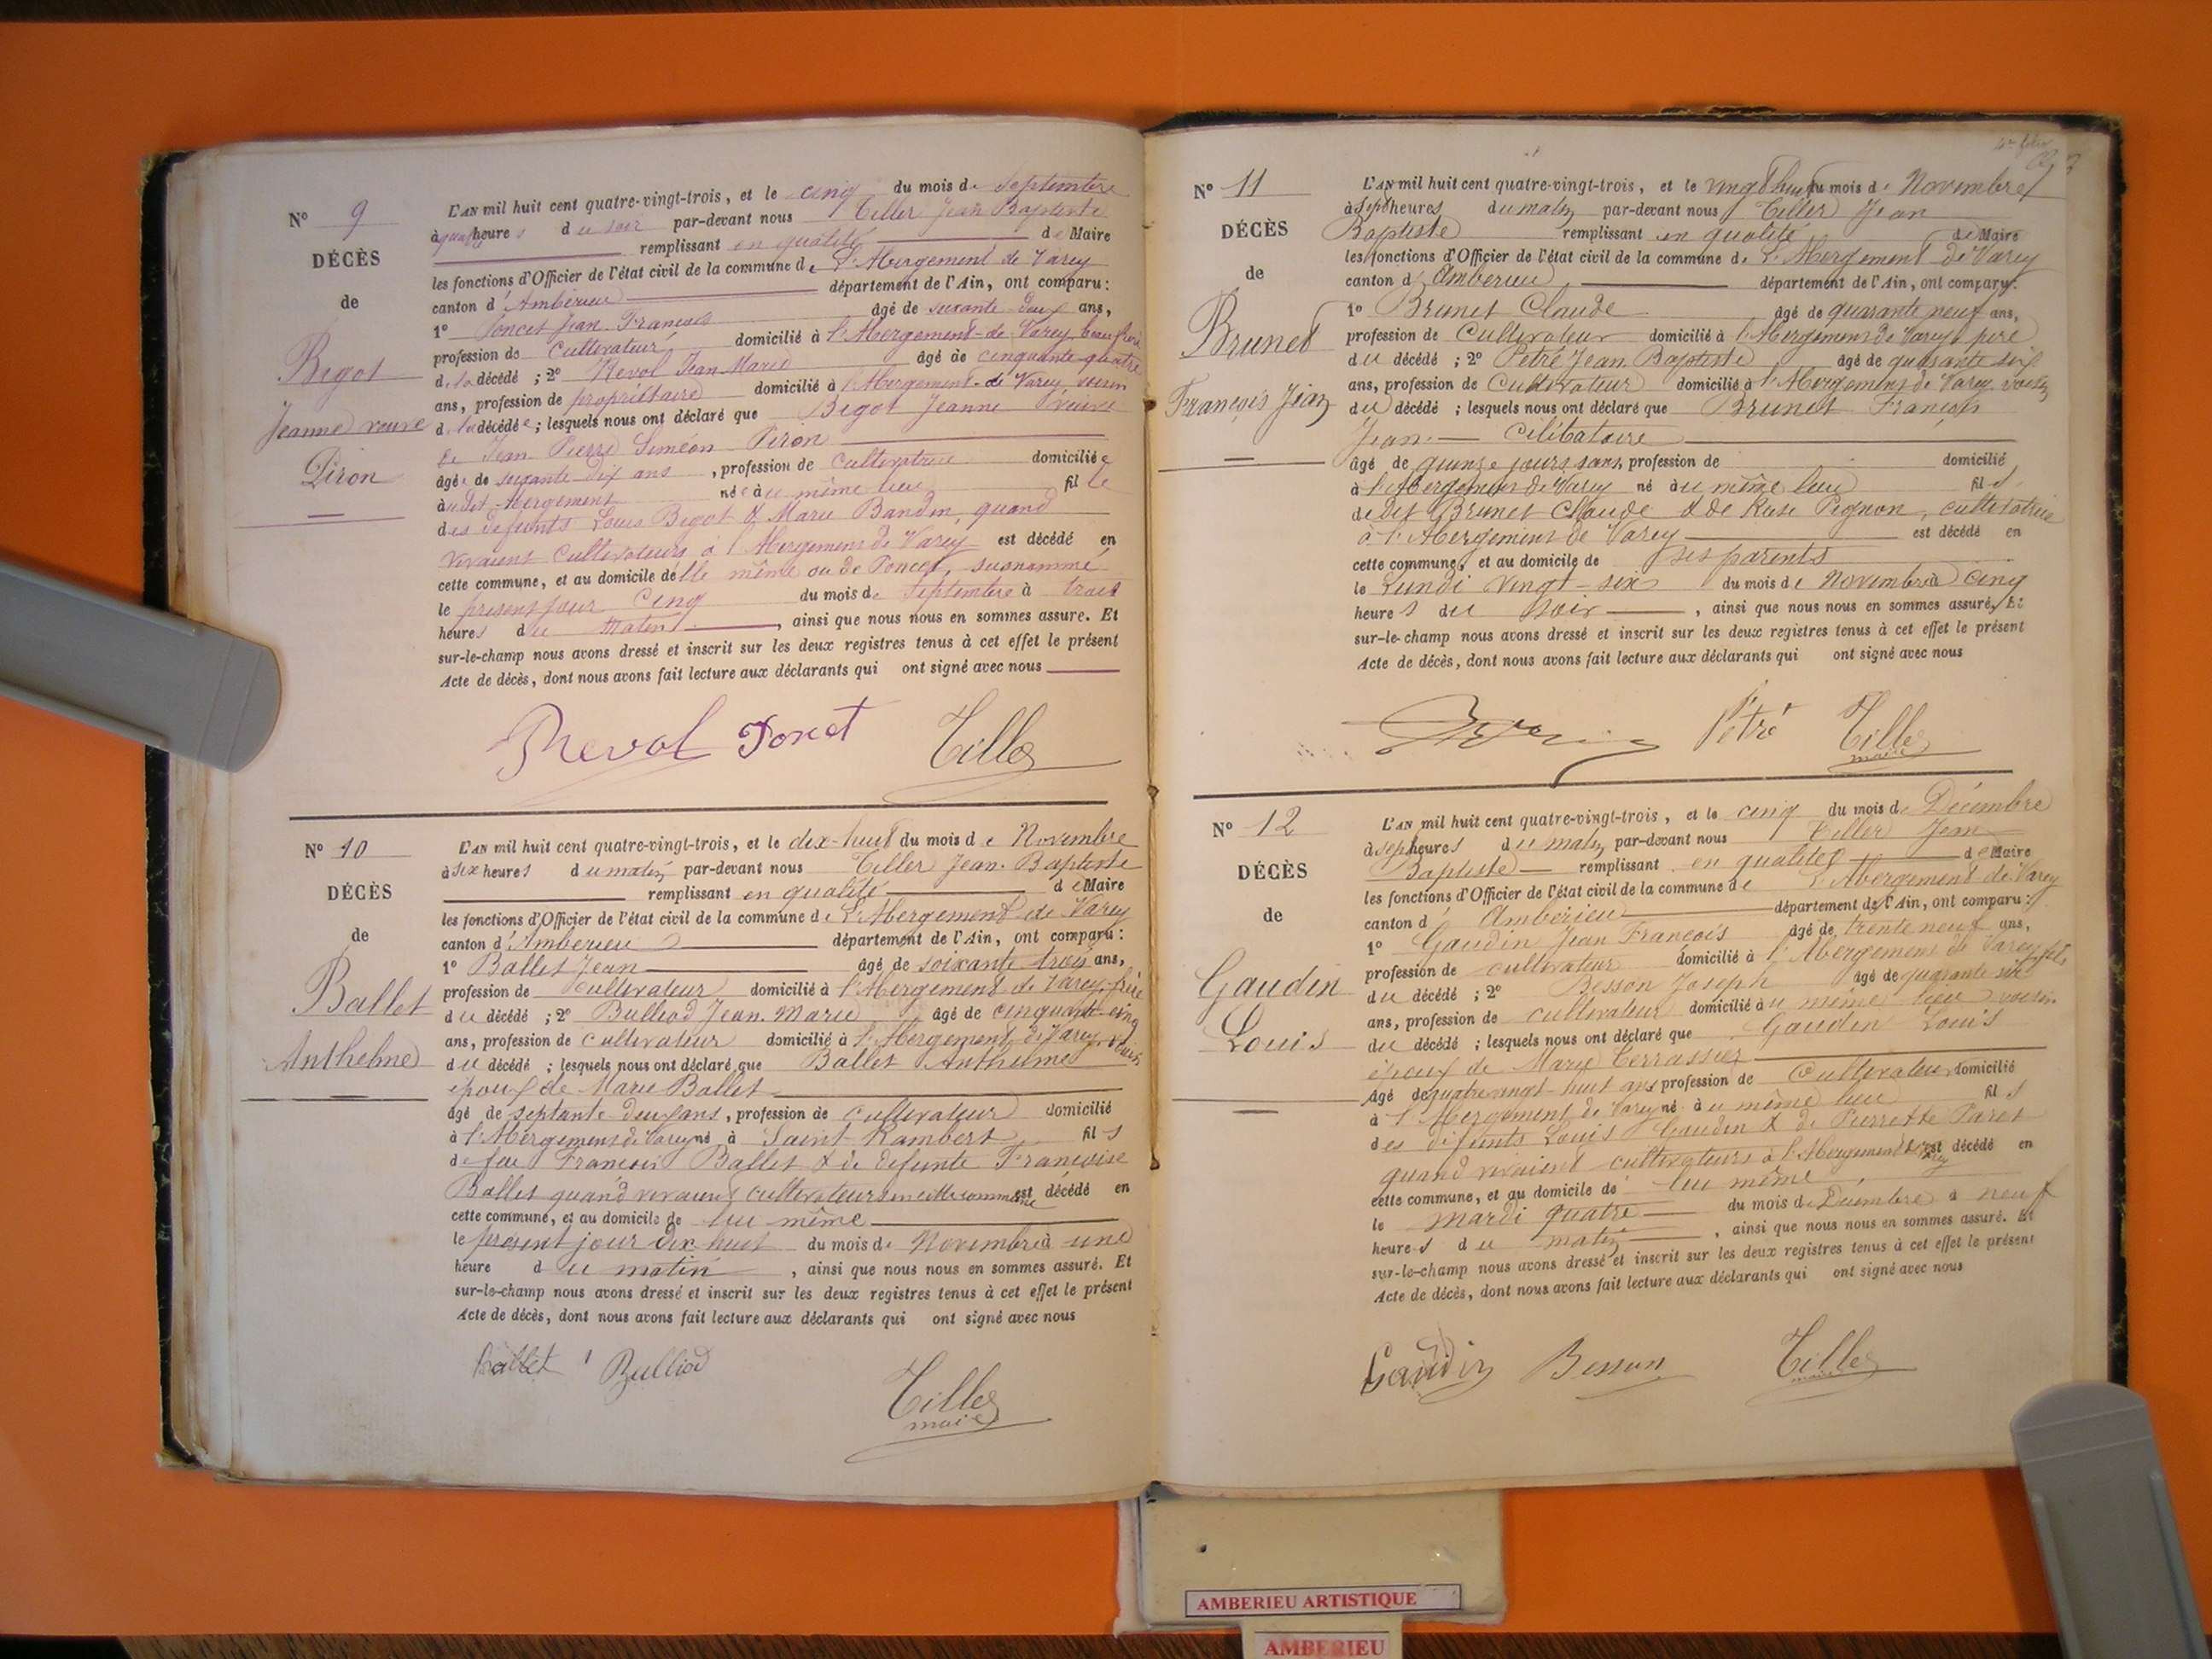 N° 9
DÉCÈS
de
Bigot
Jeanne veuve
Piron
L'AN mil huit cent quatre-vingt-trois, et le cinq du mois de Septembre
à quatre heures du soir par-devant nous Tiller Jean Baptiste
remplissant en qualité de Maire
les fonctions d'Officier de l'état civil de la commune de L'Abergement de Varey
canton d'Ambérieu département de l'Ain, ont comparu :
1° Poncet Jean François âgé de soixante deux ans,
profession de Cultivateur domicilié à l'Abergement-de Varey, beau frère
de la décédé ; 2° Revol Jean Marie âgé de cinquante-quatre
ans, profession de propriétaire domicilié à l'Abergement-de Varey, voisin
de la décédée ; lesquels nous ont déclaré que Bigot Jeanne veuve
de Jean Pierre Siméon Piron
âgée de soixante dix ans, profession de Cultivatrice domiciliée
au dit Abergement née au même lieu fille
des défunts Louis Bigot & Marie Bandin, quand
vivaient Cultivateurs à l'Abergement de Varey est décédé en
cette commune, et au domicile d'elle même ou de Poncet, susnommé
le présent jour Cinq du mois de Septembre à trois
heures du matin, ainsi que nous nous en sommes assuré. Et
sur-le-champ nous avons dressé et inscrit sur les deux registres tenus à cet effet le présent
Acte de décès, dont nous avons fait lecture aux déclarants qui ont signé avec nous
Revol Ponct Tiller
N° 10
DÉCÈS
de
Ballet
Anthelme
L'AN mil huit cent quatre-vingt-trois, et le dix-huit du mois de Novembre
à six heures du matin par-devant nous Tiller Jean-Baptiste
remplissant en qualité de Maire
les fonctions d'Officier de l'état civil de la commune de L'Abergement-de Varey
canton d'Ambérieu département de l'Ain, ont comparu :
1° Ballet Jean âgé de soixante trois ans,
profession de Cultivateur domicilié à l'Abergement de Varey, frère
du décédé ; 2° Bulliod Jean-Marie âgé de cinquante-cinq
ans, profession de Cultivateur domicilié à l'Abergement de Varey, voisin
du décédé ; lesquels nous ont déclaré que Ballet Anthelme
époux de Marie Ballet
âgé de septante deux ans, profession de Cultivateur domicilié
à l'Abergement de Varey né à Saint Rambert fils
de feu François Ballet & de défunte Françoise
Ballet quand vivaient cultivateurs en cette commune est décédé en
cette commune, et au domicile de lui même
le présent jour dix huit du mois de Novembre à une
heure du matin, ainsi que nous nous en sommes assuré. Et
sur-le-champ nous avons dressé et inscrit sur les deux registres tenus à cet effet le présent
Acte de décès, dont nous avons fait lecture aux déclarants qui ont signé avec nous
Ballet Bulliod Tiller
maire
N° 11
DÉCÈS
de
Brunet
François Jean
L'AN mil huit cent quatre-vingt-trois, et le vingt huit du mois de Novembre
à sept heures du matin par-devant nous Tiller Jean
Baptiste remplissant en qualité de Maire
les fonctions d'Officier de l'état civil de la commune de L'Abergement de Varey
canton d'Ambérieu département de l'Ain, ont comparu :
1° Brunet Claude âgé de quarante neuf ans,
profession de Cultivateur domicilié à l'Abergement de Varey, père
du décédé ; 2° Pétré Jean Baptiste âgé de quarante six
ans, profession de Cultivateur domicilié à l'Abergement de Varey, voisin
du décédé ; lesquels nous ont déclaré que Brunet François
Jean célibataire
âgé de quinze jours sans profession de domicilié
à l'Abergement de Varey né au même lieu fils
de dit Brunet Claude & de Rose Pignon, cultivatrice
à l'Abergement de Varey est décédé en
cette commune, et au domicile de ses parents
le Lundi vingt-six du mois de Novembre à cinq
heures du soir, ainsi que nous nous en sommes assuré. Et
sur-le-champ nous avons dressé et inscrit sur les deux registres tenus à cet effet le présent
Acte de décès, dont nous avons fait lecture aux déclarants qui ont signé avec nous
Pétré Tiller
maire
N° 12
DÉCÈS
de
Gaudin
Louis
L'AN mil huit cent quatre-vingt-trois, et le cinq du mois de Décembre
à sept heures du matin par-devant nous Tiller Jean
Baptiste remplissant en qualité de Maire
les fonctions d'Officier de l'état civil de la commune de L'Abergement de Varey
canton d'Ambérieu département de l'Ain, ont comparu :
1° Gaudin Jean François âgé de trente neuf ans,
profession de cultivateur domicilié à l'Abergement de Varey, fils
du décédé ; 2° Besson Joseph âgé de quarante six
ans, profession de cultivateur domicilié au même lieu voisin
du décédé ; lesquels nous ont déclaré que Gaudin Louis
époux de Marie Terrassier
âgé de quatre vingt huit ans profession de Cultivateur domicilié
à l'Abergement de Varey né au même lieu fils
des défunts Louis Gaudin & de Pierrette Paret
quand vivaient cultivateurs à l'Abergement de Varey est décédé en
cette commune, et au domicile de lui même
le mardi quatre du mois de Décembre à neuf
heures du matin, ainsi que nous nous en sommes assuré. Et
sur-le-champ nous avons dressé et inscrit sur les deux registres tenus à cet effet le présent
Acte de décès, dont nous avons fait lecture aux déclarants qui ont signé avec nous
Gaudin Besson Tiller
maire
AMBERIEU ARTISTIQUE
AMBERIEU